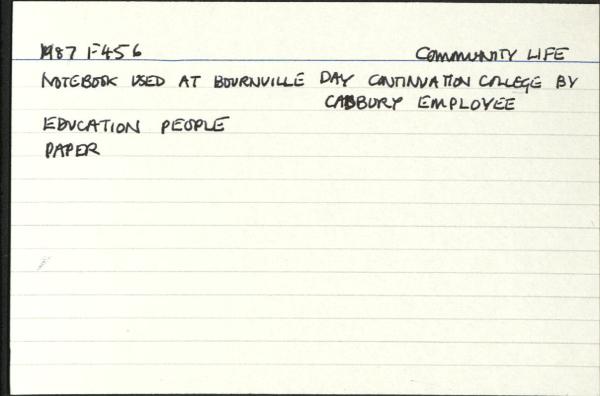 1987 F456 COMMUNITY LIFE
NOTEBOOK USED AT BOURNVILLE DAY CONTINUATION COLLEGE BY
CADBURY EMPLOYEE
EDUCATION PEOPLE
PAPER